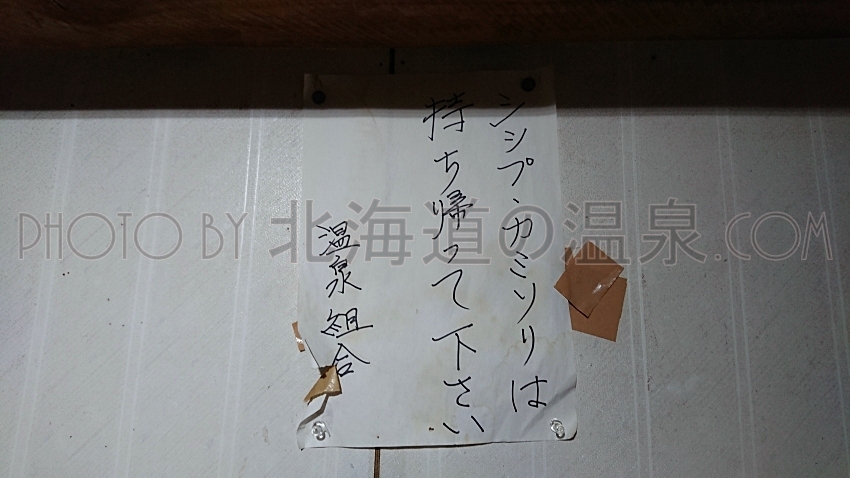 シップ・カミソリは
持ち帰って下さい
温泉組合
PHOTO BY 北海道の温泉.COM